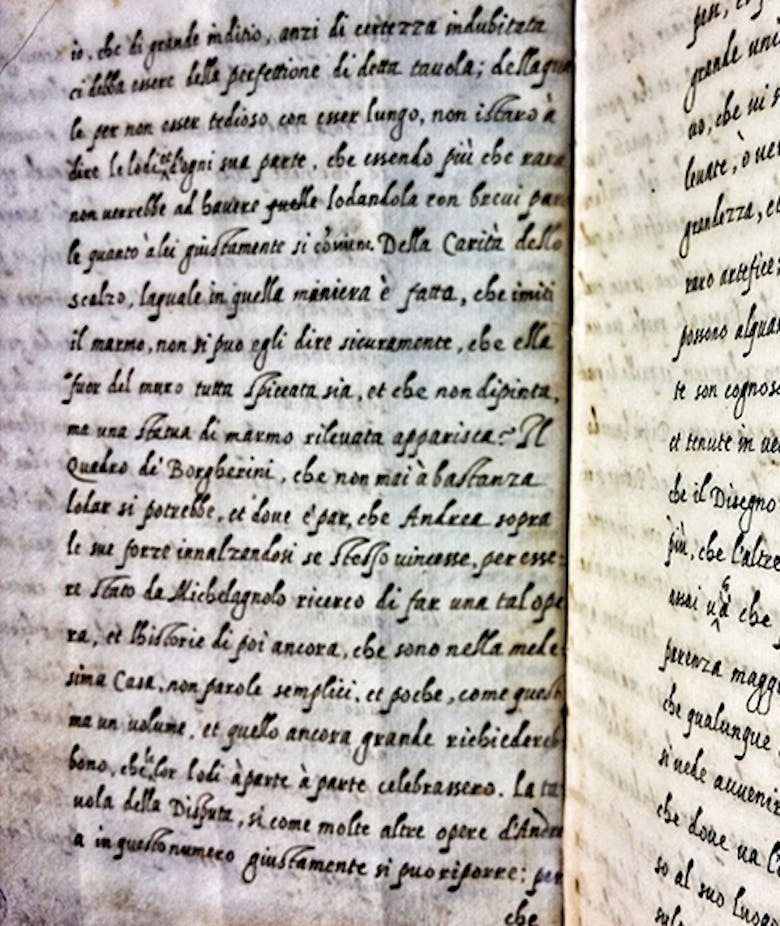 io, che di grande inditio, anzi di certezza indubitata
ci debba essere della perfettione di detta tauola; della qua
le per non esser tedioso con esser lungo, non istarò à
dire le lodi d'ogni sua parte, che essendo più che rara
non uerrebbe ad hauere quelle lodandola con breui paro
le quanto à lei giustamente si conuiene. Della Carità dello
scalzo, laquale in quella maniera è fatta, che imiti
il marmo, non si puo egli dire sicuramente, che ella
fuor del muro tutta spiccata sia, et che non dipinta,
ma una statua di marmo rileuata apparisca? Il
Quadro de' Borgherini, che non mai à bastanza
lodar si potrebbe, et doue è par, che Andrea sopra
le sue forze innalzandosi se stesso uincesse, per esse=
re stato da Michelagnolo ricerco di far una tal ope
ra, et l'historie di poi ancora, che sono nella mede
sima Casa, non parole semplici, et poche, come queste
ma un uolume, et quello ancora grande richiedereb
bono, che le lor lodi à parte à parte celebrassero. La ta
uola della Disputa, si come molte altre opere d'Andre
a in questo numero giustamente si puo riporre: per
che
grande uni
uo, che ui s
leuate, ò uer
grandezza, et
raro artefice;
possono alqua
te son cognosc
et tenute in ue
che il Disegno
più, che l'altre
assai uà che
perenza magg
che qualunque
si uede auuenir
che doue ua l'
so al suo luogo